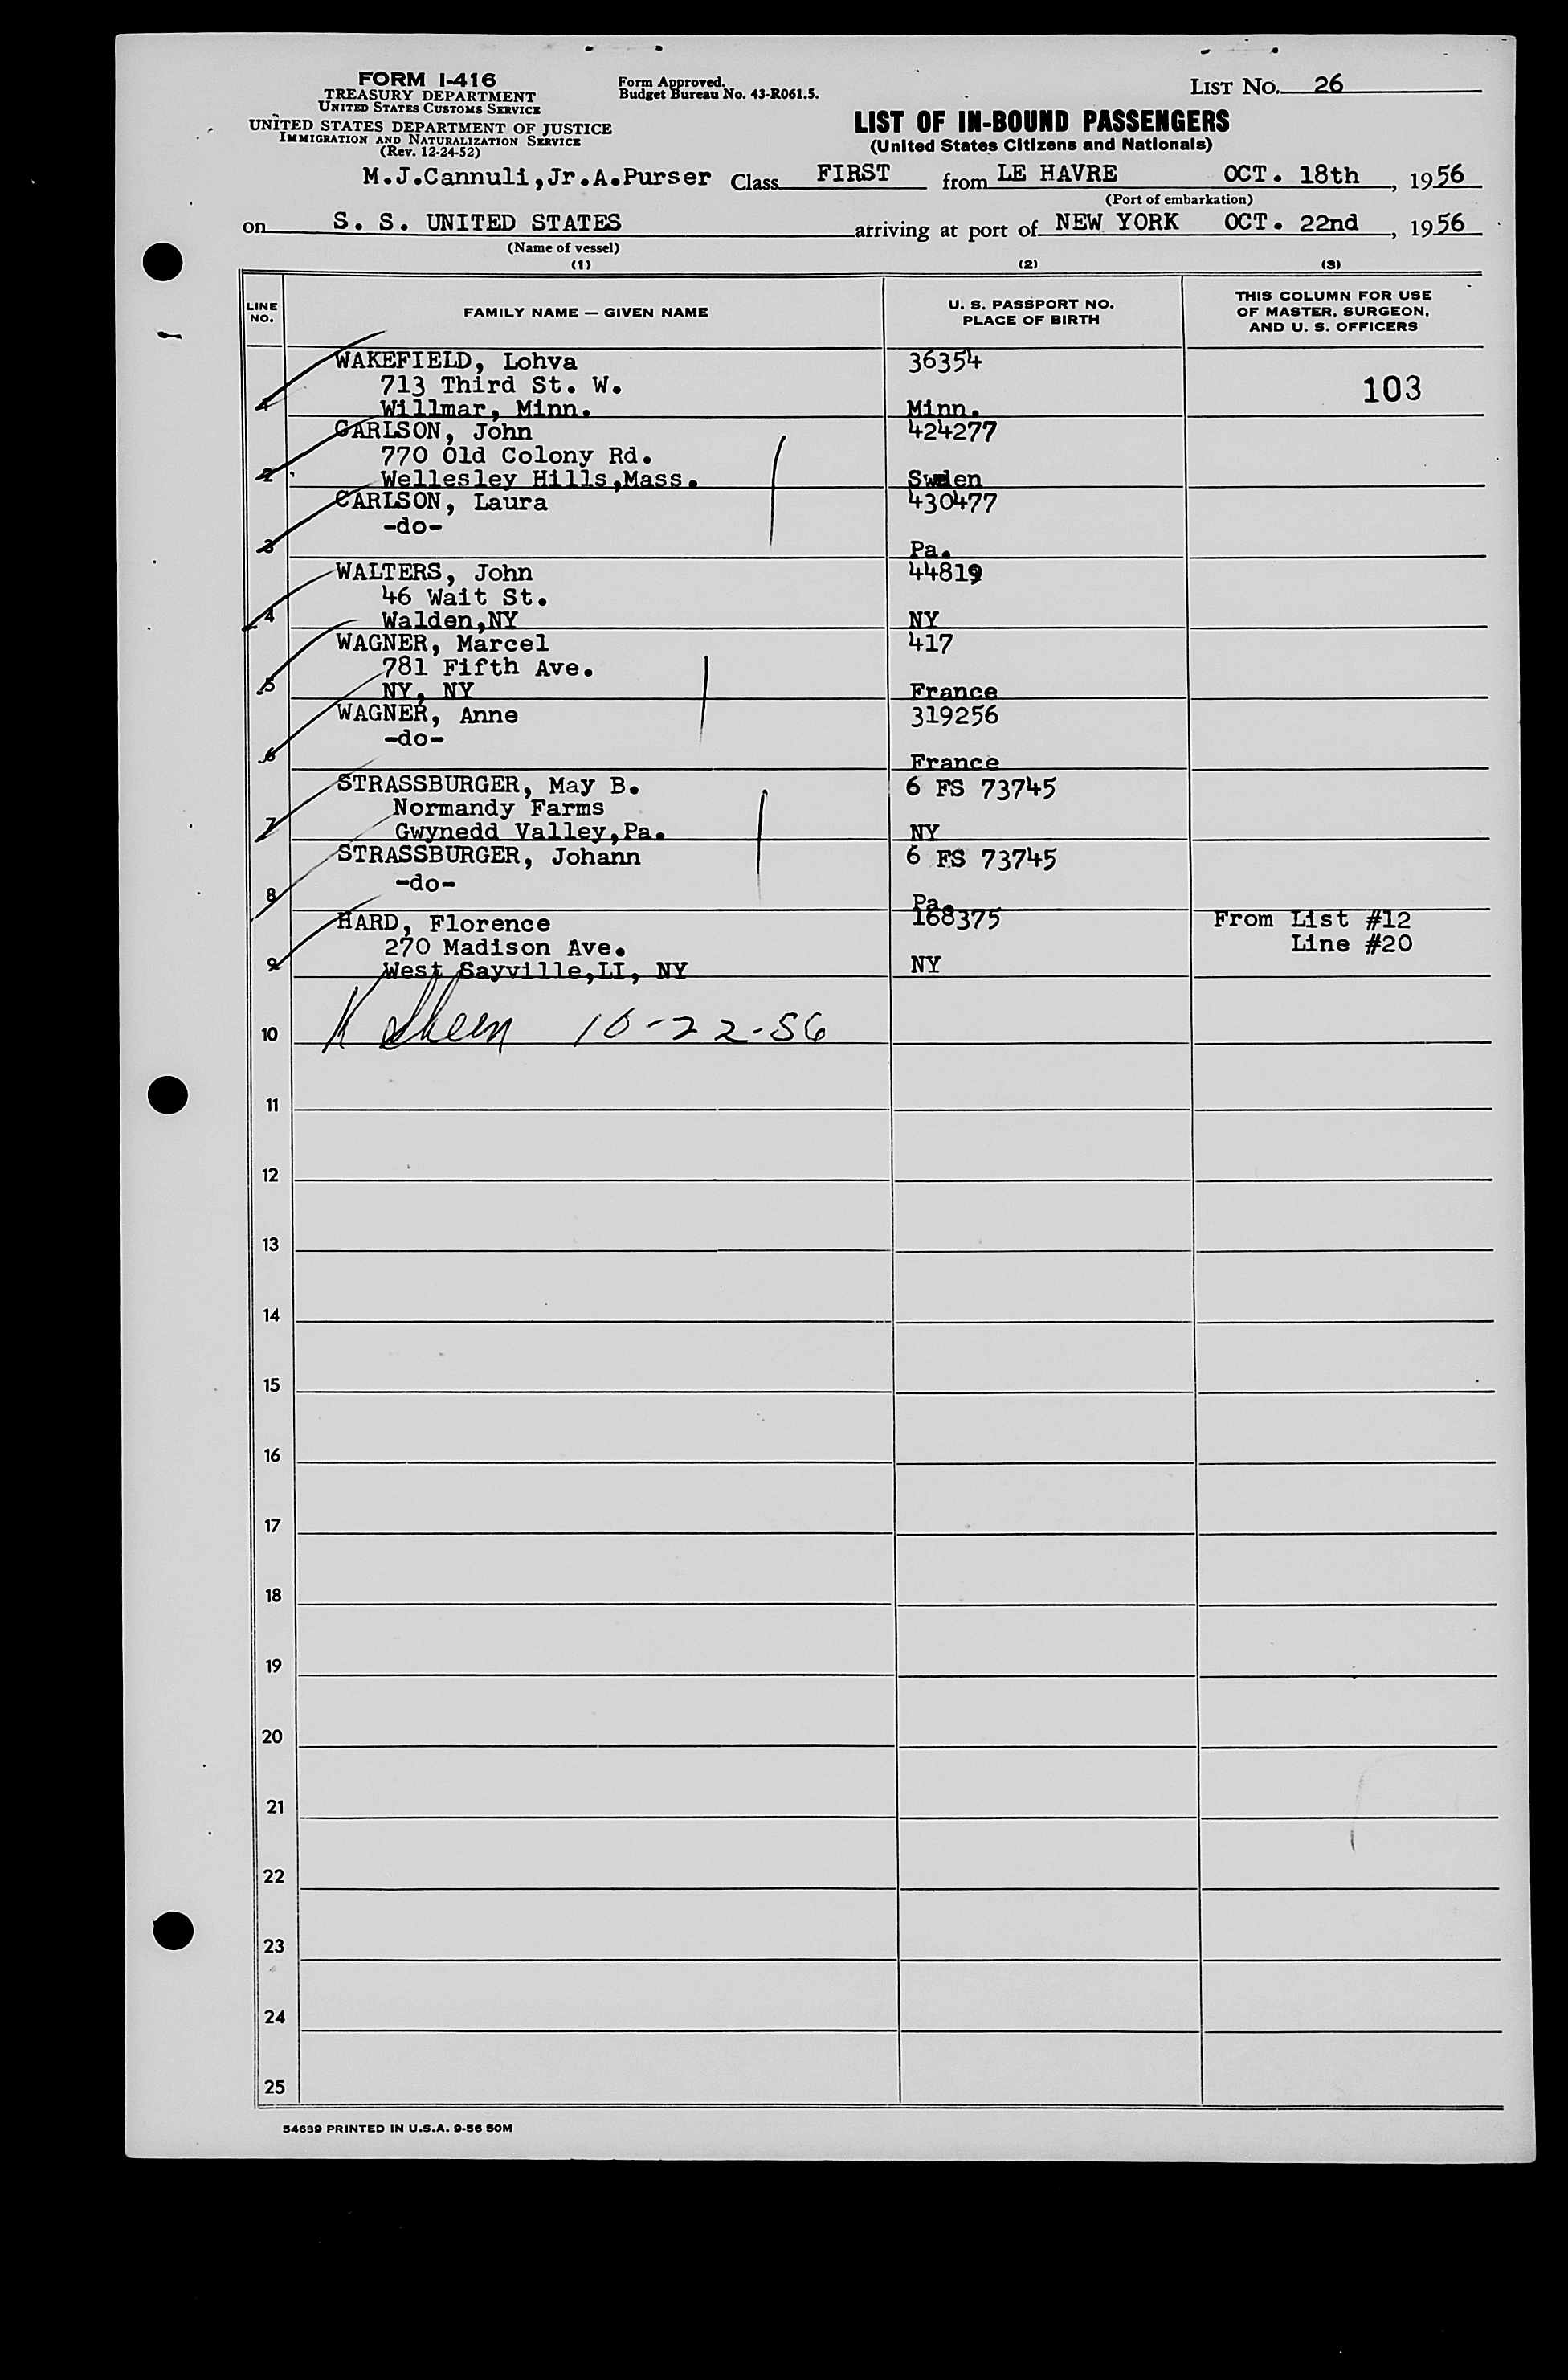 FORM I-416
TREASURY DEPARTMENT
UNITED STATES CUSTOMS SERVICE
UNITED STATES DEPARTMENT OF JUSTICE
IMMIGRATION AND NATURALIZATION SERVICE
(Rev. 12-24-52)
Form Approved.
Budget Bureau No. 43-R061.5.
LIST No. 26
LIST OF IN-BOUND PASSENGERS
(United States Citizens and Nationals)
M.J.Cannuli,Jr.A.Purser Class FIRST from LE HAVRE OCT. 18th, 1956
(Port of embarkation)
on S. S. UNITED STATES arriving at port of NEW YORK OCT. 22nd, 1956
(Name of vessel)
(1) (2) (3)
LINE NO. FAMILY NAME — GIVEN NAME U. S. PASSPORT NO. PLACE OF BIRTH THIS COLUMN FOR USE OF MASTER, SURGEON, AND U. S. OFFICERS
WAKEFIELD, Lohva 36354
713 Third St. W. 103
1 Willmar, Minn. Minn.
CARLSON, John 424277
770 Old Colony Rd.
2 Wellesley Hills,Mass. Sweden
CARLSON, Laura 430477
-do-
3 Pa.
WALTERS, John 44819
46 Wait St.
4 Walden,NY NY
WAGNER, Marcel 417
781 Fifth Ave.
5 NY, NY France
WAGNER, Anne 319256
-do-
6 France
STRASSBURGER, May B. 6 FS 73745
Normandy Farms
7 Gwynedd Valley,Pa. NY
STRASSBURGER, Johann 6 FS 73745
-do-
8 Pa.
HARD, Florence 168375 From List #12
270 Madison Ave. Line #20
9 West Sayville,LI, NY NY
10 K Sheen 10-22-56
11
12
13
14
15
16
17
18
19
20
21
22
23
24
25
54699 PRINTED IN U.S.A. 9-56 50M